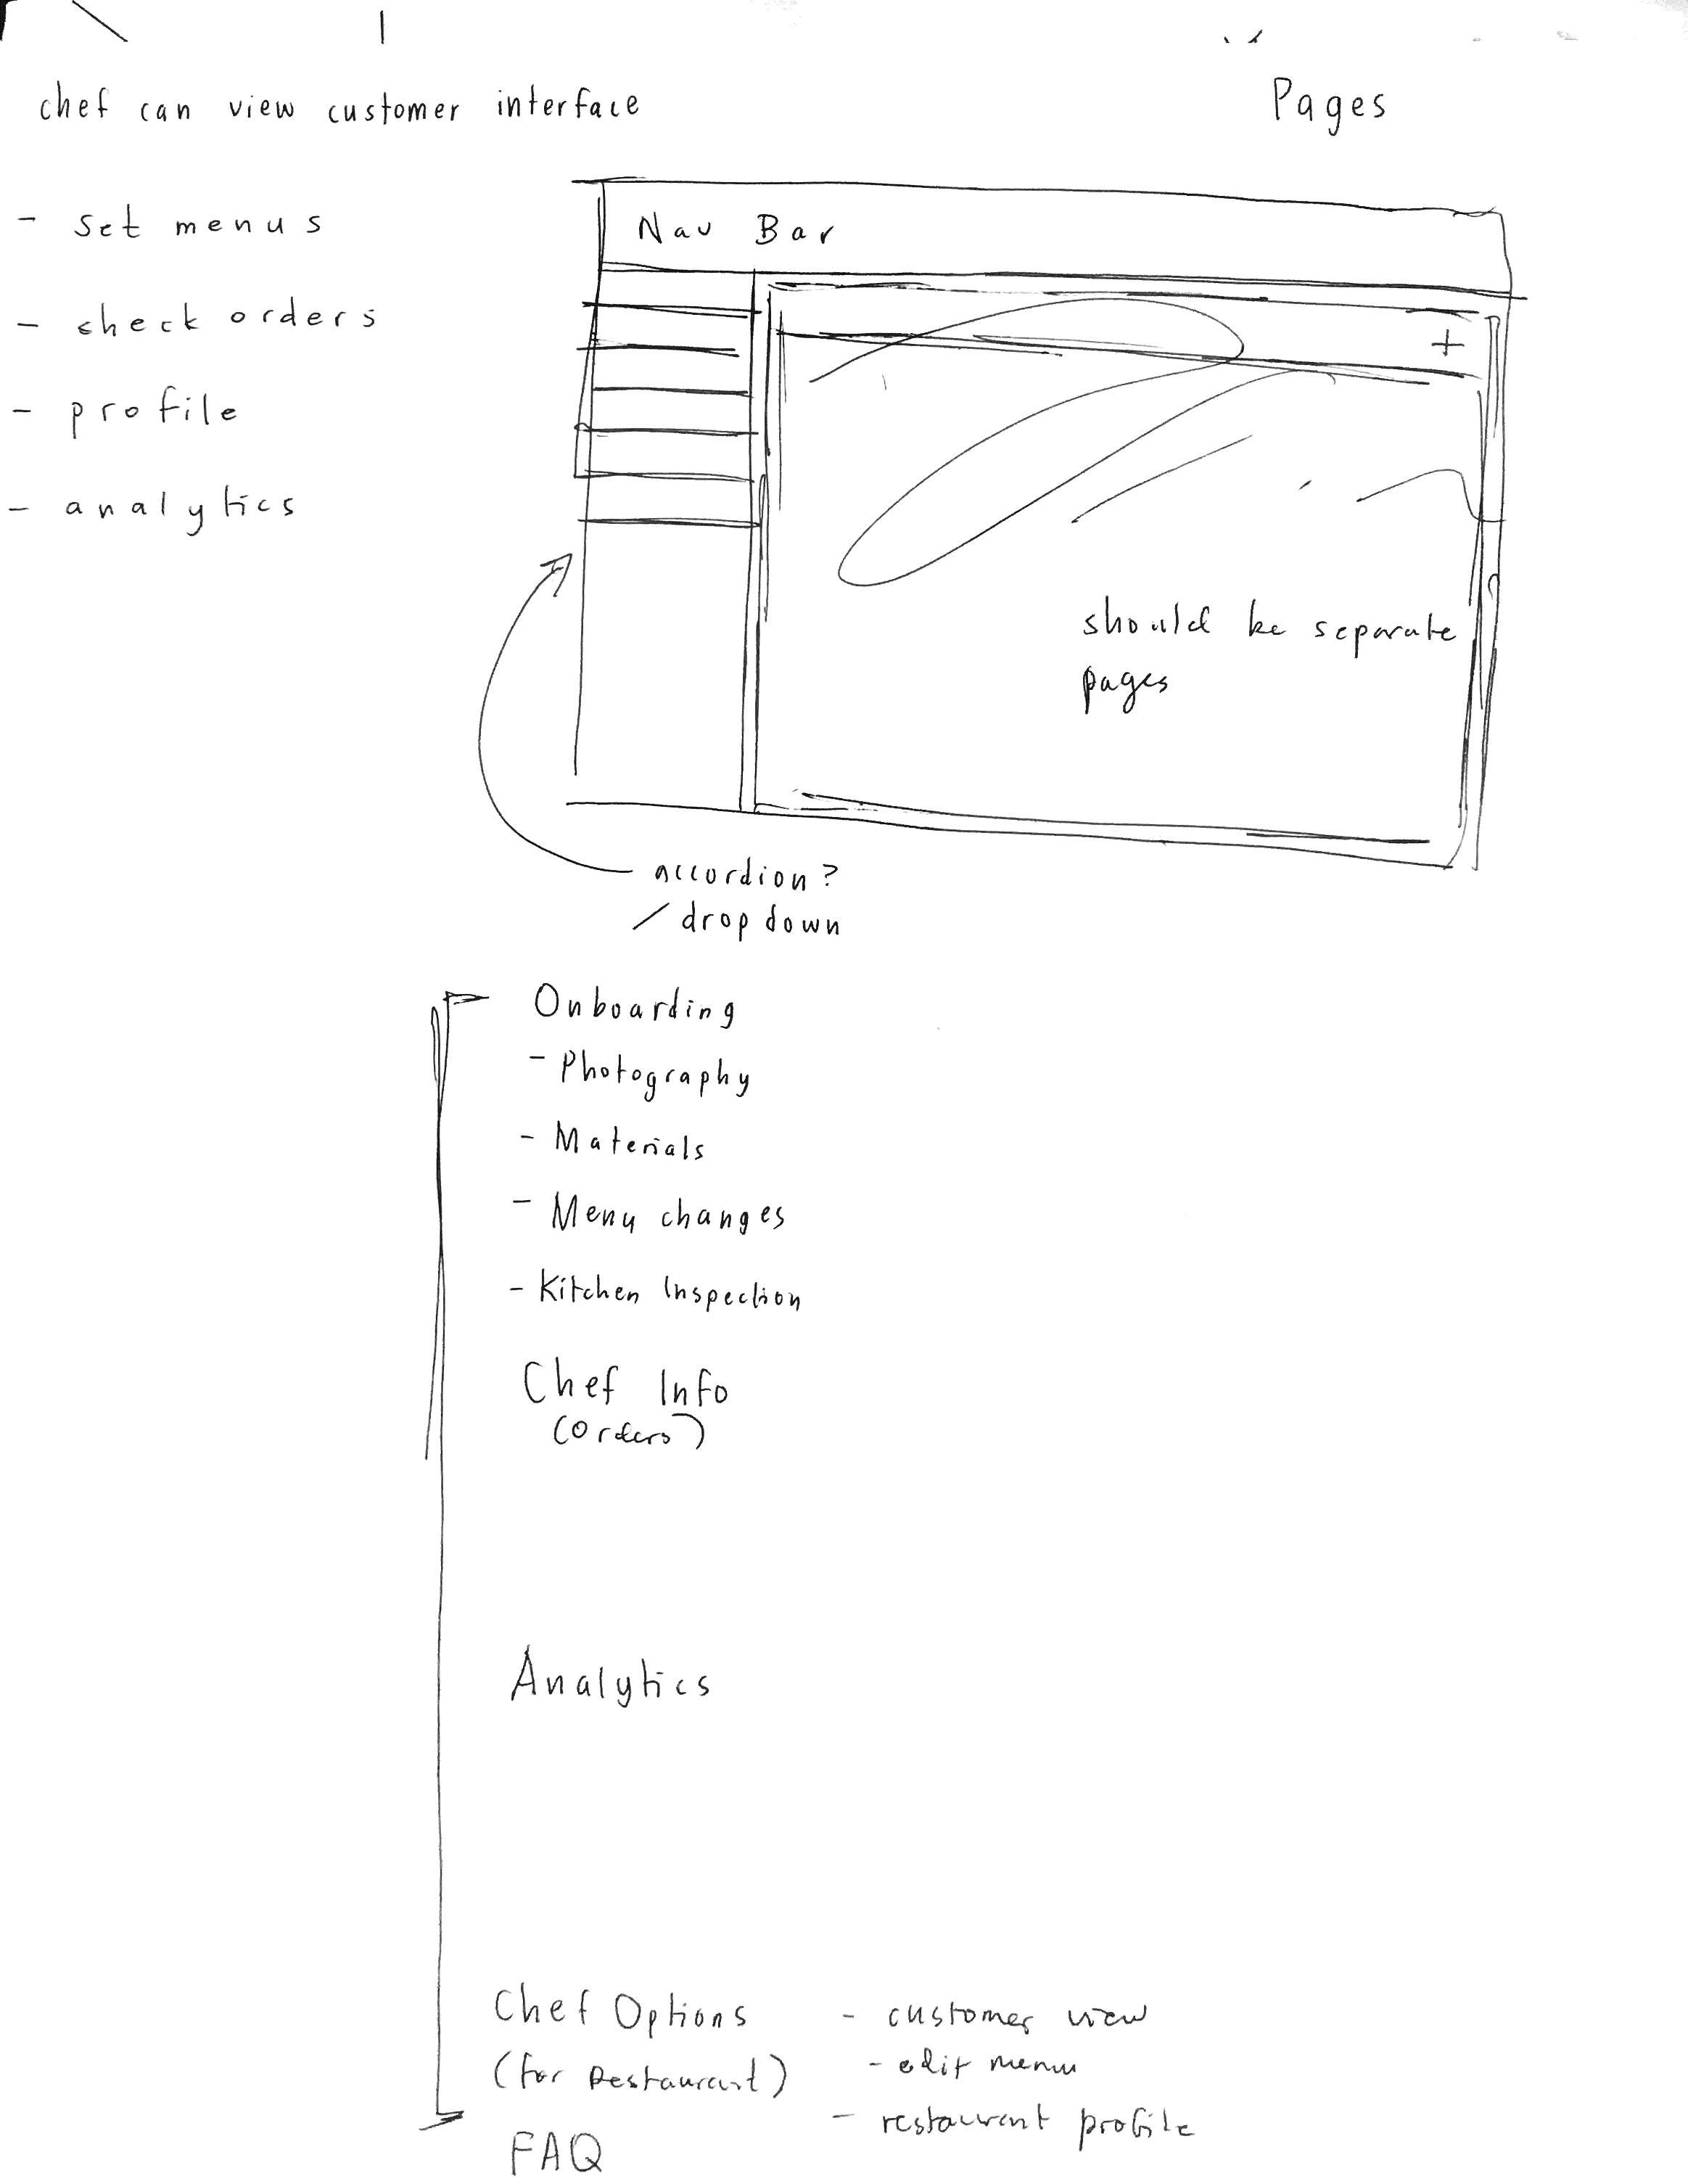 chef can view customer interface
Pages
- set menus
- check orders
- profile
- analytics
Nav Bar
+
should be separate
pages
accordion?
/ drop down
Onboarding
- Photography
- Materials
- Menu changes
- Kitchen Inspection
Chef Info
(Orders)
Analytics
Chef Options
(for Restaurant)
- customer view
- edit menu
- restaurant profile
FAQ